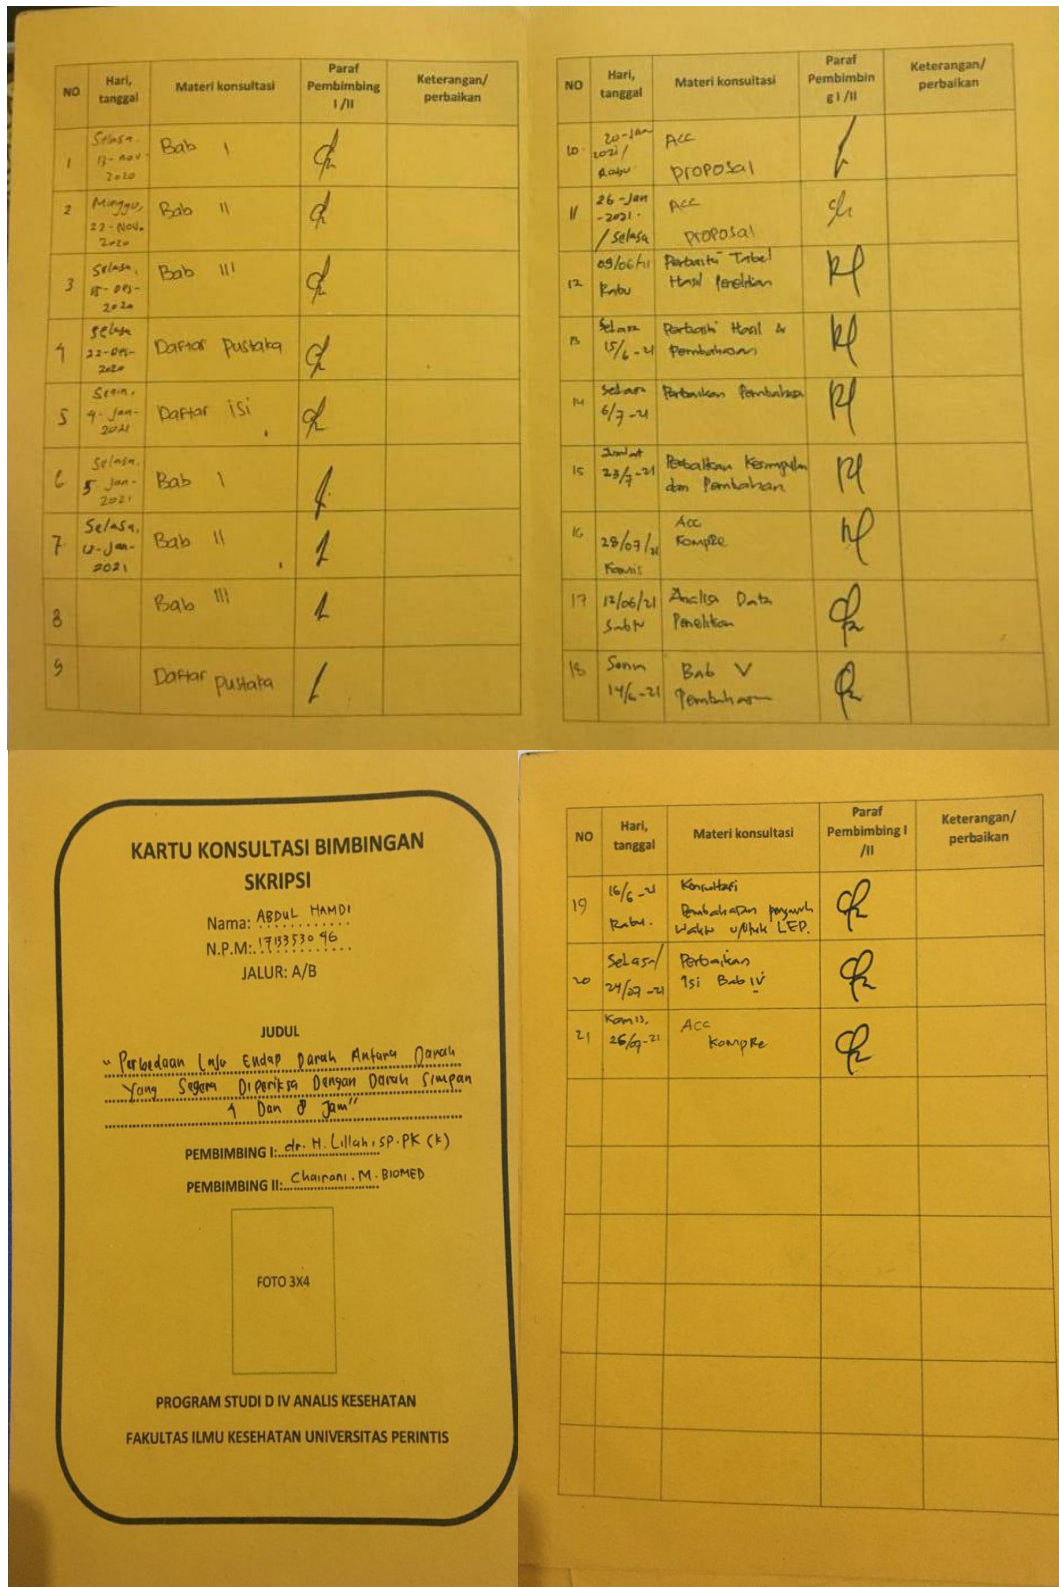 NO Hari, tanggal Materi konsultasi Paraf Pembimbing I /II Keterangan/ perbaikan
1 Selasa. 13-nov-2020 Bab I
2 Minggu, 22-Nov. 2020 Bab II
3 Selasa, 15-Des-2020 Bab III
4 Selasa 22-Des-2020 Daftar Pustaka
5 Senin, 4-Jan-2021 Daftar isi
6 Selasa, 5 Jan-2021 Bab I
7 Selasa, 12-Jan-2021 Bab II
8 Bab III
9 Daftar pustaka
NO Hari, tanggal Materi konsultasi Paraf Pembimbin g I /II Keterangan/ perbaikan
10. 20-Jan 2021/ Rabu Acc proposal
11 26-Jan -2021. /Selasa Acc proposal
12 09/06/ Rabu Perbaiki Tabel Hasil Penelitian
13 Selasa 15/6-21 Perbaiki Hasil & Pembahasan
14 Selasa 6/7-21 Perbaikan Pembahasan
15 Jumat 23/7-21 Perbaikan Kesimpulan dan Pembahasan
16 28/07/21 Kamis Acc Kompre
17 12/06/21 Sabtu Analisa Data Penelitian
18 Senin 14/6-21 Bab V Pembahasan
KARTU KONSULTASI BIMBINGAN
SKRIPSI
Nama: ABDUL HAMDI
N.P.M: 1713353096
JALUR: A/B
JUDUL
"Perbedaan Laju Endap Darah Antara Darah
Yang Segera Diperiksa Dengan Darah Simpan
4 Dan 8 Jam"
PEMBIMBING I: dr. H. Lillah, SP.PK (K)
PEMBIMBING II: Chairani. M. BIOMED
FOTO 3X4
PROGRAM STUDI D IV ANALIS KESEHATAN
FAKULTAS ILMU KESEHATAN UNIVERSITAS PERINTIS
NO Hari, tanggal Materi konsultasi Paraf Pembimbing I /II Keterangan/ perbaikan
19 16/6-21 Rabu. Konsultasi Pembahasan pengaruh Waktu untuk LED.
20 Selasa/ 24/07-21 Perbaikan Isi Bab IV
21 Kamis, 26/07-21 Acc Kompre